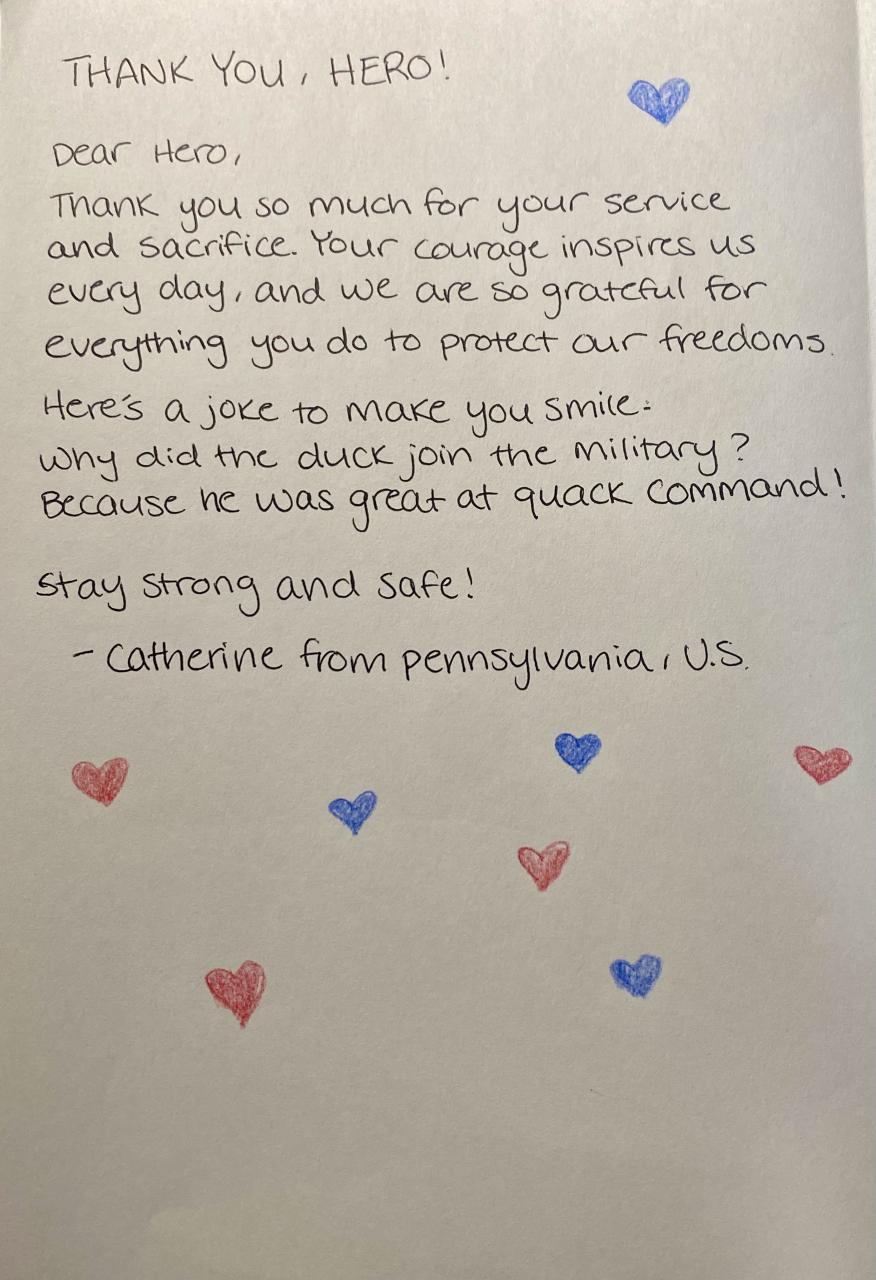 THANK YOU, HERO!
Dear Hero,
Thank you so much for your service
and sacrifice. Your courage inspires us
every day, and we are so grateful for
everything you do to protect our freedoms.
Here's a joke to make you smile:
Why did the duck join the military?
Because he was great at quack command!
Stay strong and safe!
- Catherine from Pennsylvania, U.S.